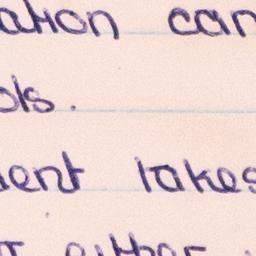 ation can
ols.
ent takes
either